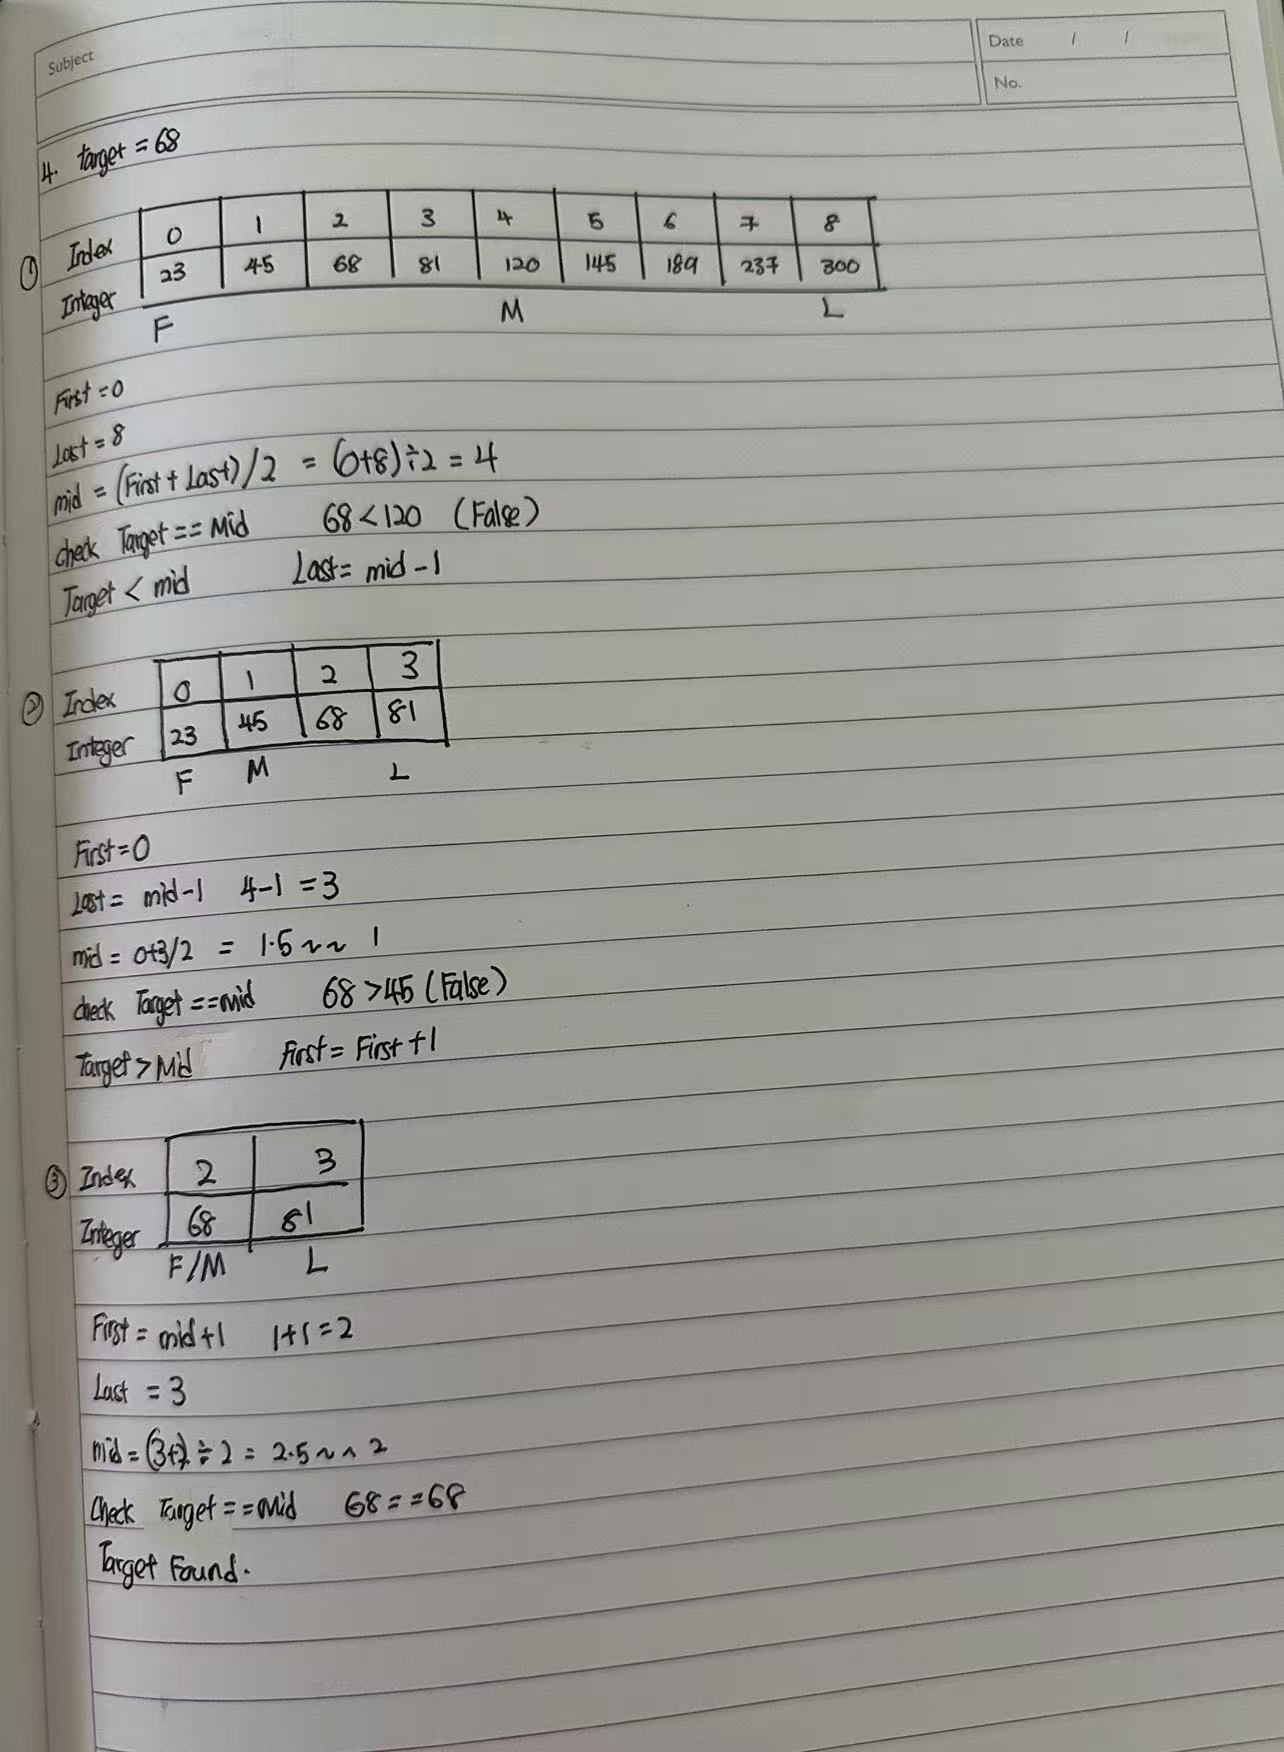 Subject
Date / /
No.
4. target = 68
① Index 0 1 2 3 4 5 6 7 8
Integer 23 45 68 81 120 145 189 237 300
F M L
First = 0
Last = 8
mid = (First + Last) / 2 = (0+8) ÷ 2 = 4
check Target == Mid 68 < 120 (False)
Target < mid Last = mid - 1
② Index 0 1 2 3
Integer 23 45 68 81
F M L
First = 0
Last = mid - 1 4 - 1 = 3
mid = 0+3/2 = 1.5 ~~ 1
check Target == mid 68 > 45 (False)
Target > Mid First = First + 1
③ Index 2 3
Integer 68 81
F/M L
First = mid + 1 1 + 1 = 2
Last = 3
mid = (3+2) ÷ 2 = 2.5 ~~ 2
Check Target == Mid 68 == 68
Target Found.